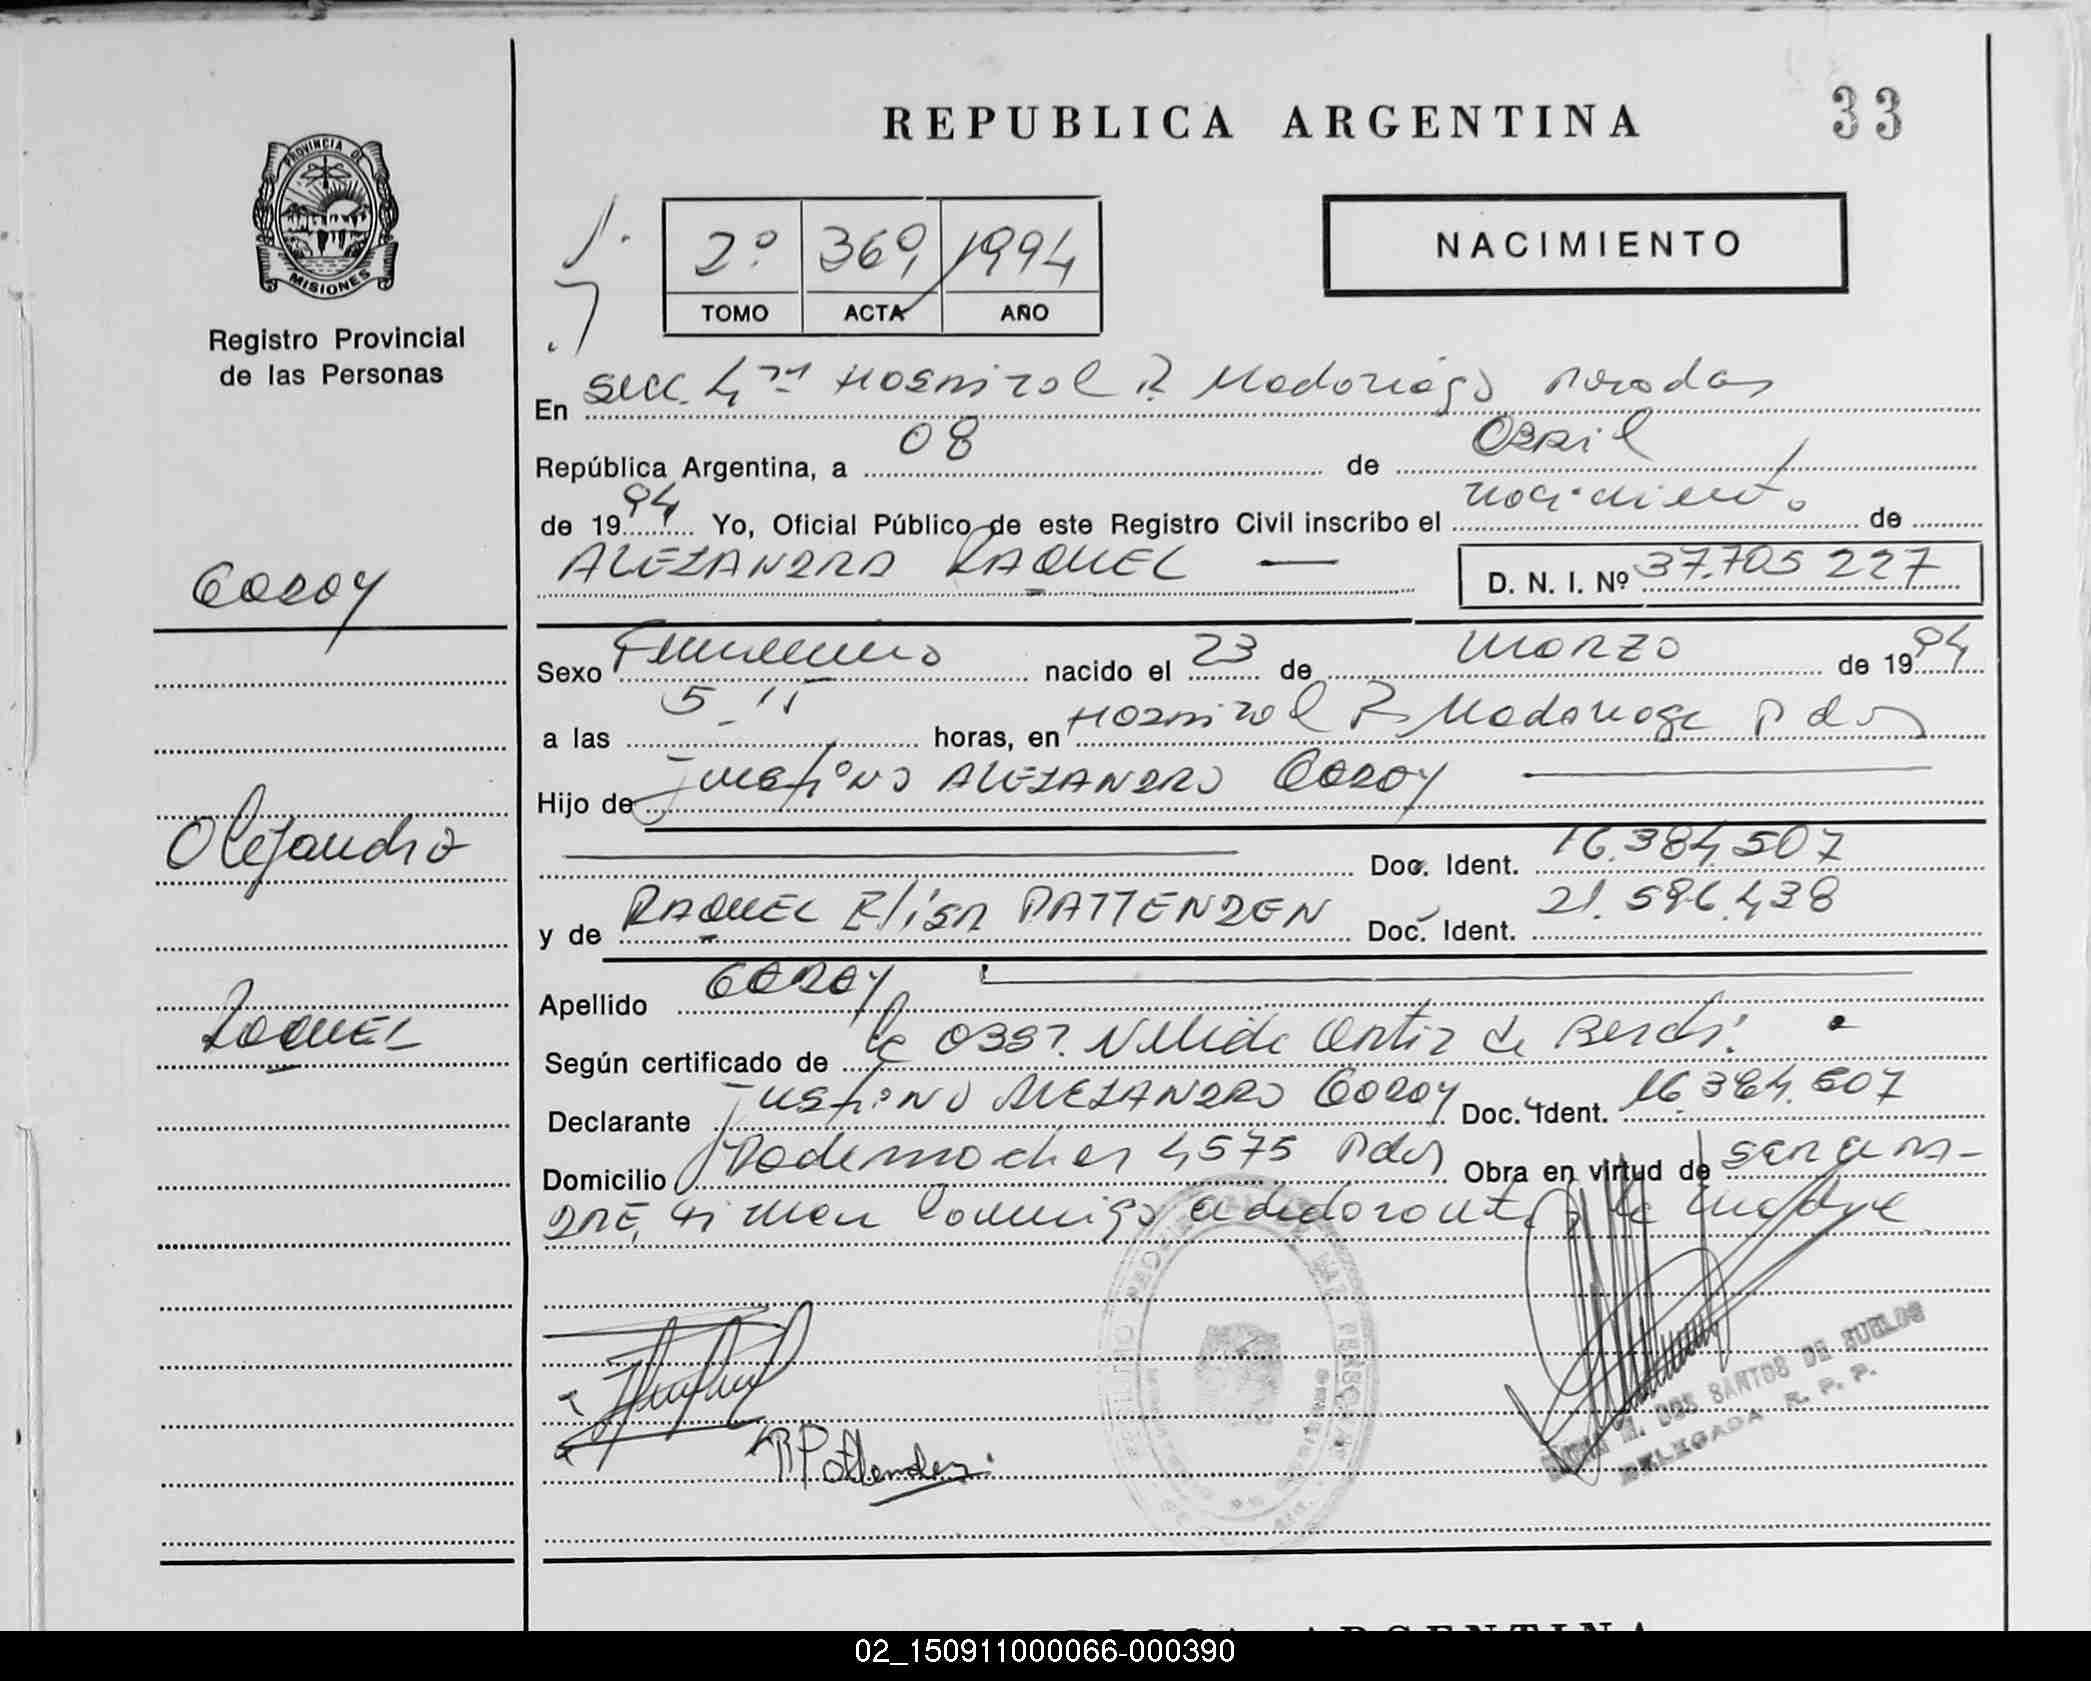 REPUBLICA ARGENTINA
33
PROVINCIA DE
MISIONES
Registro Provincial
de las Personas
2º 369 1994
TOMO ACTA AÑO
NACIMIENTO
En Secc. 4ta Hospital R. Madariaga Posadas
República Argentina, a 08 de Abril
de 1994 Yo, Oficial Público de este Registro Civil inscribo el nacimiento de
ALEJANDRA RAQUEL D. N. I. Nº 37.705 227
GODOY
Sexo Femenino nacido el 23 de Marzo de 1994
a las 5 horas, en Hospital R. Madariaga Pdas
Hijo de Justino ALEJANDRO GODOY
Doc. Ident. 16.384.507
Alejandra
y de RAQUEL Elisa PATTENDEN Doc. Ident. 21.586.438
Apellido GODOY
Raquel
Según certificado de la Obst. Nelida Ortiz de
Declarante Justino ALEJANDRO GODOY Doc. Ident. 16.384.507
Domicilio 4575 Pdas Obra en virtud de ser el PA-
DRE, firman conmigo el declarante y la madre
RPattenden.
DOS SANTOS DE
DELEGADA R. P. P.
02_150911000066-000390